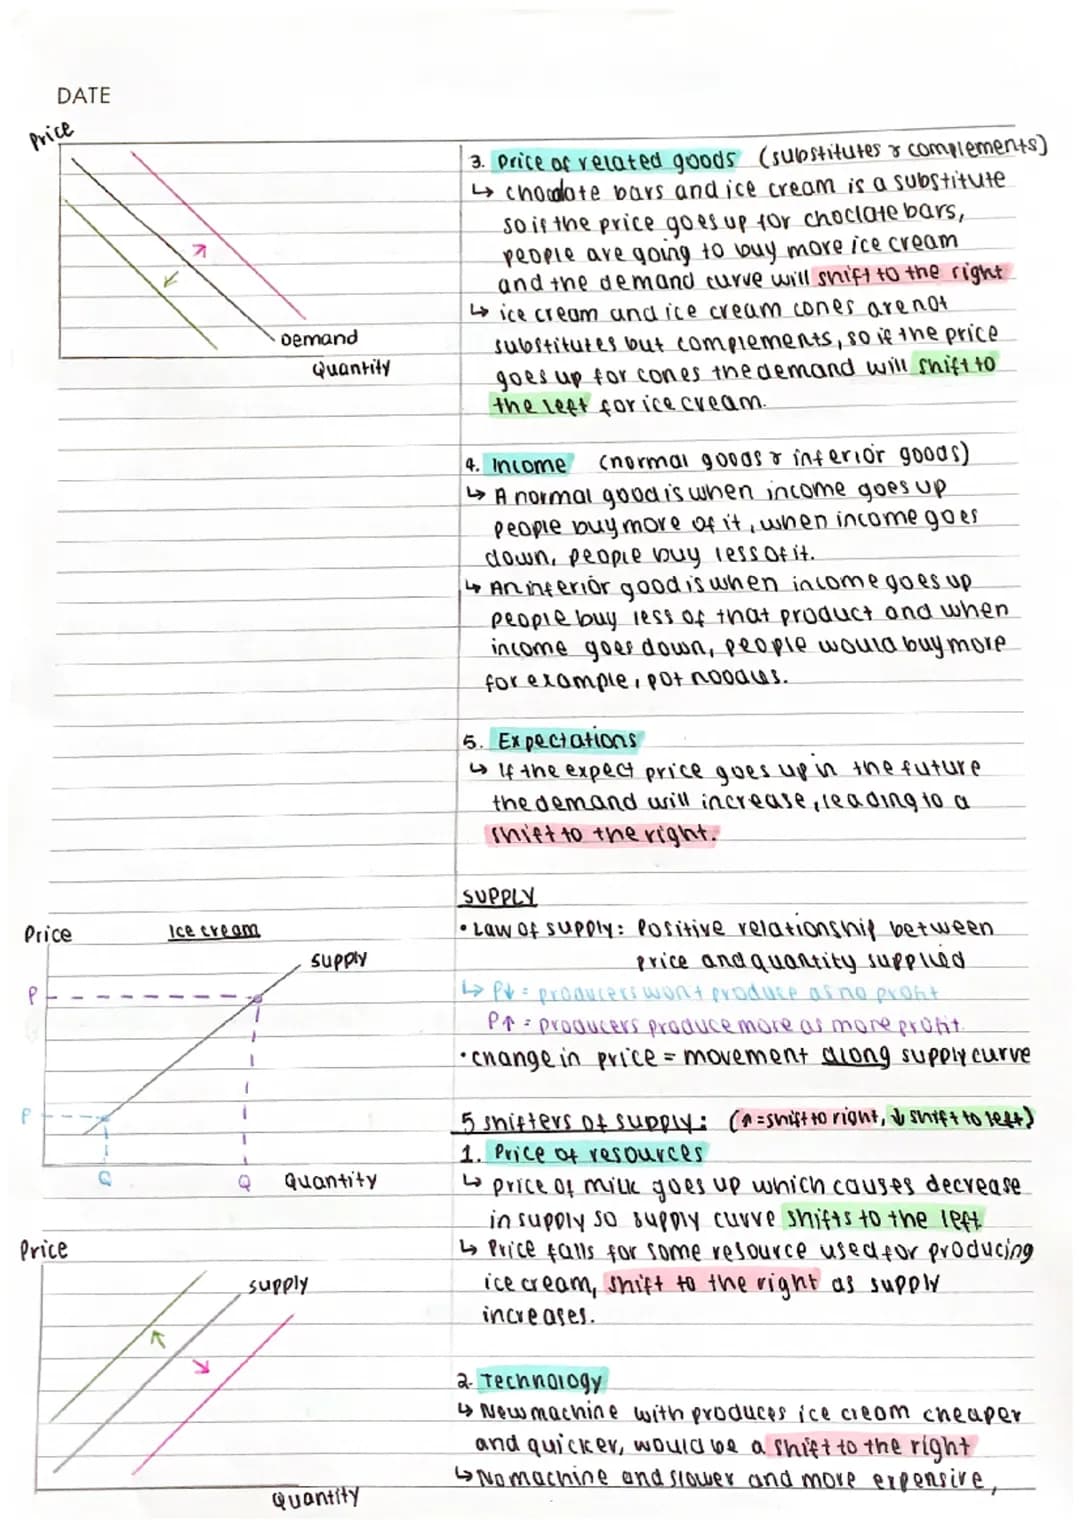 DATE
Price
Demand
Quantity
3. Price of related goods (substitutes & complements)
↳ choclate bars and ice cream is a substitute
so if the price goes up for choclate bars,
people are going to buy more ice cream
and the demand curve will shift to the right
↳ ice cream and ice cream cones are not
substitutes but complements, so if the price
goes up for cones the demand will shift to
the left for ice cream.
4. Income (normal goods & inferior goods)
↳ A normal good is when income goes up
people buy more of it, when income goes
down, people buy less of it.
↳ An inferior good is when income goes up
people buy less of that product and when
income goes down, people would buy more
for example, pot noodles.
5. Expectations
↳ If the expect price goes up in the future
the demand will increase, leading to a
shift to the right.
Price
Ice cream
supply
P
P
Q
Q
Quantity
SUPPLY
• Law of supply: Positive relationship between
price and quantity supplied
↳ P↓ = producers wont produce as no profit
P↑ = producers produce more as more profit.
• change in price = movement along supply curve
5 shifters of supply: (↑=shift to right, ↓ shift to left)
1. Price of resources
↳ price of milk goes up which causes decrease
in supply so supply curve shifts to the left
↳ Price falls for some resource used for producing
ice cream, shift to the right as supply
increases.
Price
supply
Quantity
2. Technology
↳ New machine with produces ice cream cheaper
and quicker, would be a shift to the right
↳ No machine and slower and more expensive,